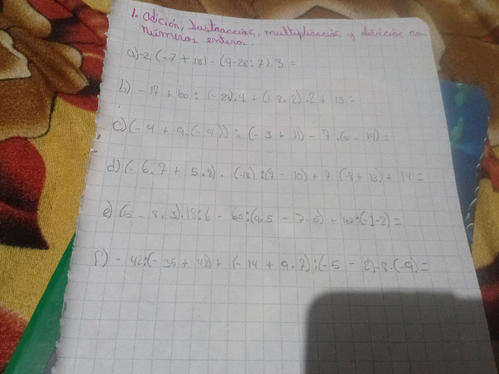 1. Adición, Sustracción, multiplicación y división con
números enteros.
a) -2.(-7 + 18) - (9-28:7).3 =
b) -17 + 60 : (-2).4 + (-8.2).2 + 13 =
c) (-4 + 9.(-4)) : (-3 + 11) - 7.
d) (-6.7 + 5.8). :(9 - 10) + 7. + 14 =
e) .18:6 - 60:(9.5 - 7. ) + :(-1-2) =
f) -42:(-35 + 42) + (-14 + 9.2):(-5 - 8)-8.(-9) =